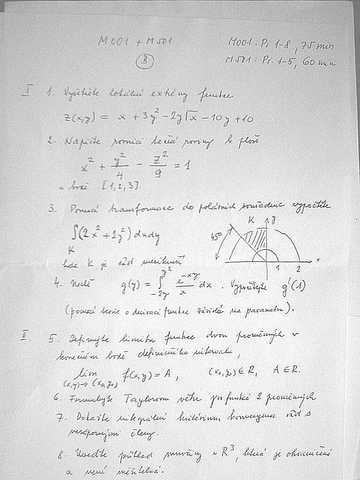 M001 + M501
M001: Př. 1-8, 75 min
M501: Př. 1-5, 60 min
8
I 1. Vyšetřete lokální extrémy funkce
z(x,y) = x + 3y² - 2y√x - 10y + 10
2. Napište rovnici tečné roviny k ploše
x² + y²/4 - z²/9 = 1
v bodě [1,2,3]
3. Pomocí transformace do polárních souřadnic vypočtěte
∫∫(2x² + 2y²) dxdy
K
kde K je
K y
45°
1 2
4. Nechť g(y) = ∫ e^(-xy)/x dx. Vypočtěte g'(1)
y²
-2y
(pomocí věty o derivaci funkce závislé na parametru).
II 5. Definujte limitu funkce dvou proměnných v
konečném bodě definičního oboru,
lim f(x,y) = A, (x₀,y₀) ∈ R, A ∈ R.
(x,y)→(x₀,y₀)
6. Formulujte Taylorovu větu pro funkci 2 proměnných
7. Dokažte integrální kritérium konvergence řad s
nezápornými členy.
8. Uveďte příklad množiny v R³, která je ohraničená
a není měřitelná.